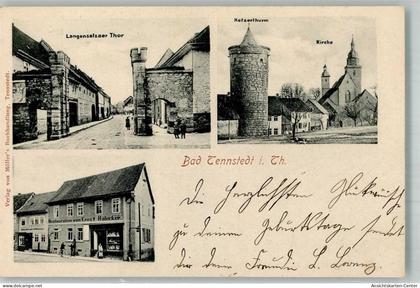 Langensalzaer Thor
Ketzerthurm
Kirche
Verlag von Möller's Buchhandlung, Tennstedt.
Ernst Habecker
Bad Tennstedt i. Th.
Die herzlichsten Glückwünsche
zu deinem Geburtstage sendet
dir deine Freundin L. Lorenz
www.ansichtskartenversand.com